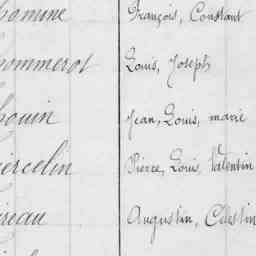 homine François, Constant
hommerot Louis, Joseph
houin Jean, Louis, marie
iercelin Pierre, Louis, Valentin
ireau Augustin, Célestin